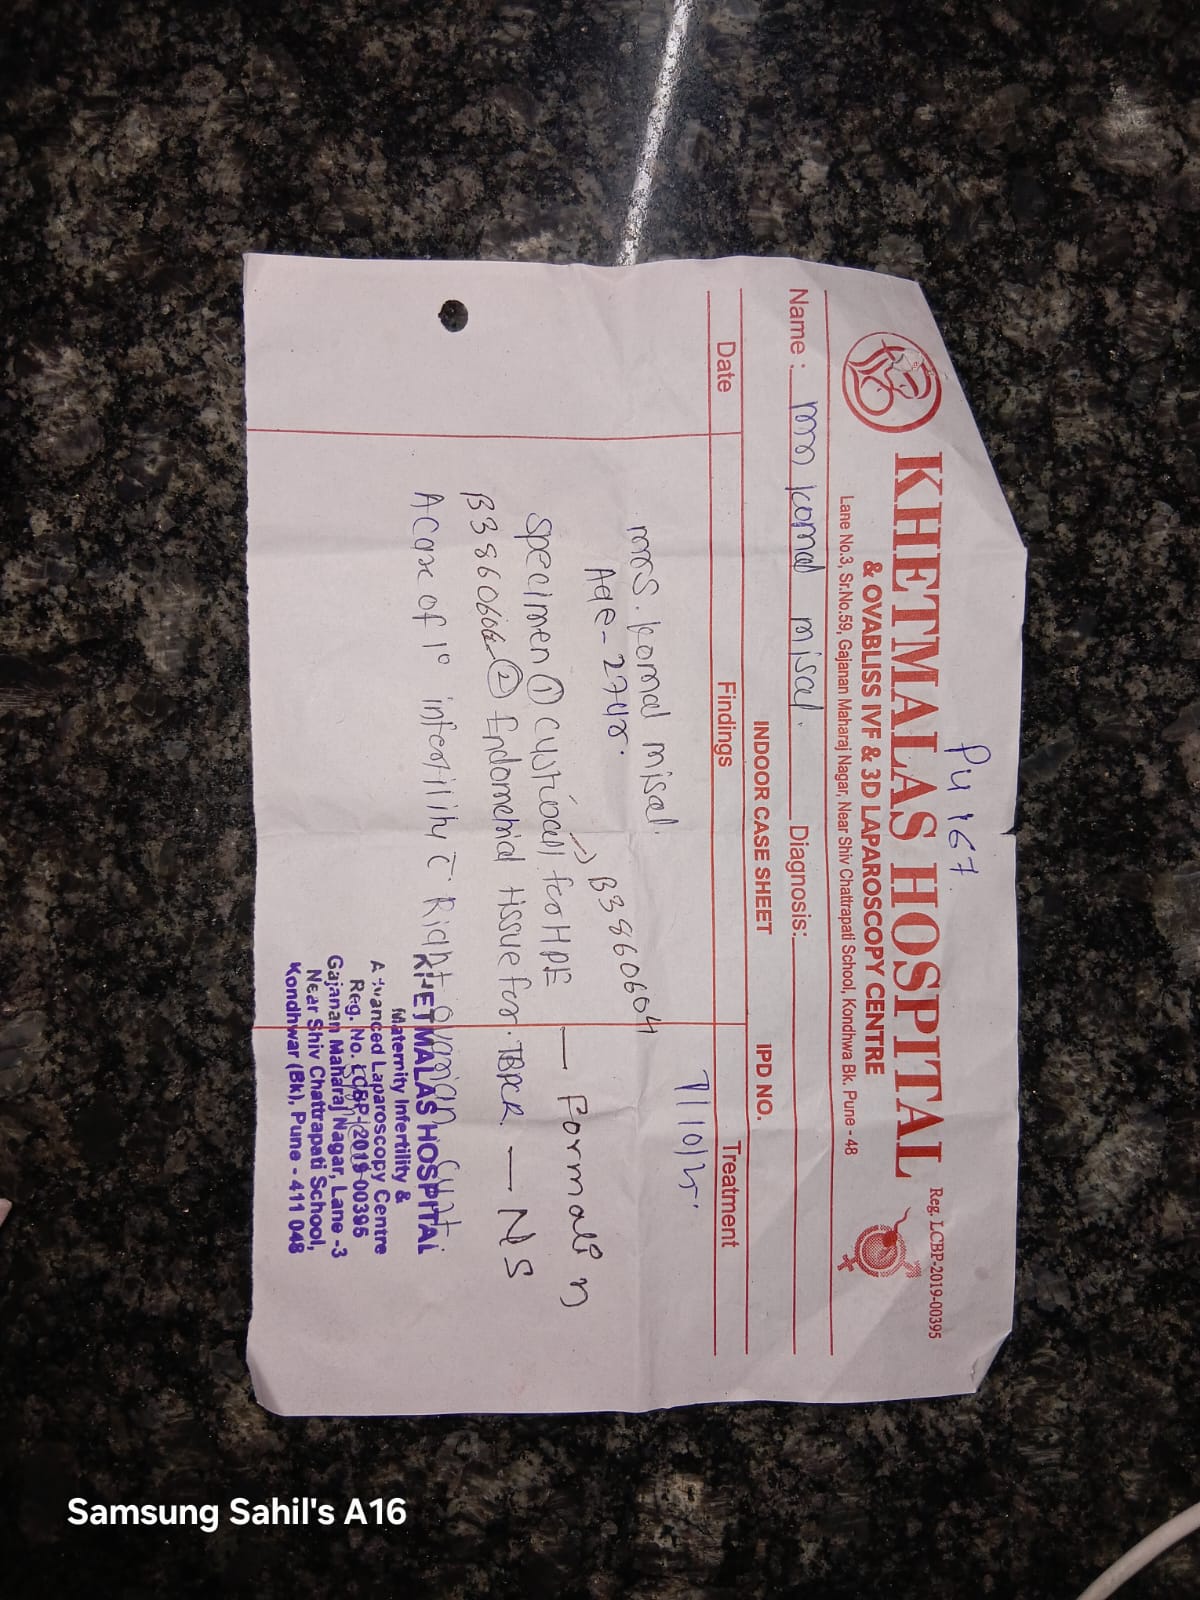 PU 167
KHETMALAS HOSPITAL
Reg. LCBP-2019-00395
& OVABLISS IVF & 3D LAPAROSCOPY CENTRE
Lane No.3, Sr.No.59, Gajanan Maharaj Nagar, Near Shiv Chattrapati School, Kondhwa Bk. Pune - 48
Name : komal misal. Diagnosis:
INDOOR CASE SHEET IPD NO.
Date Findings Treatment
mrs. komal misal.
Age - 27yr.
B3860604
Specimen ① for HPE — Formalin
② Endometrial tissue for. TBPCR — NS
A Case of 1° infertility c̄ Right ovarian cyst.
KHETMALAS HOSPITAL
Maternity Infertility &
Advanced Laparoscopy Centre
Reg. No. LCBP-2019-00395
Gajanan Maharaj Nagar, Lane -3
Near Shiv Chattrapati School,
Kondhwar (Bk), Pune - 411 048
Samsung Sahil's A16